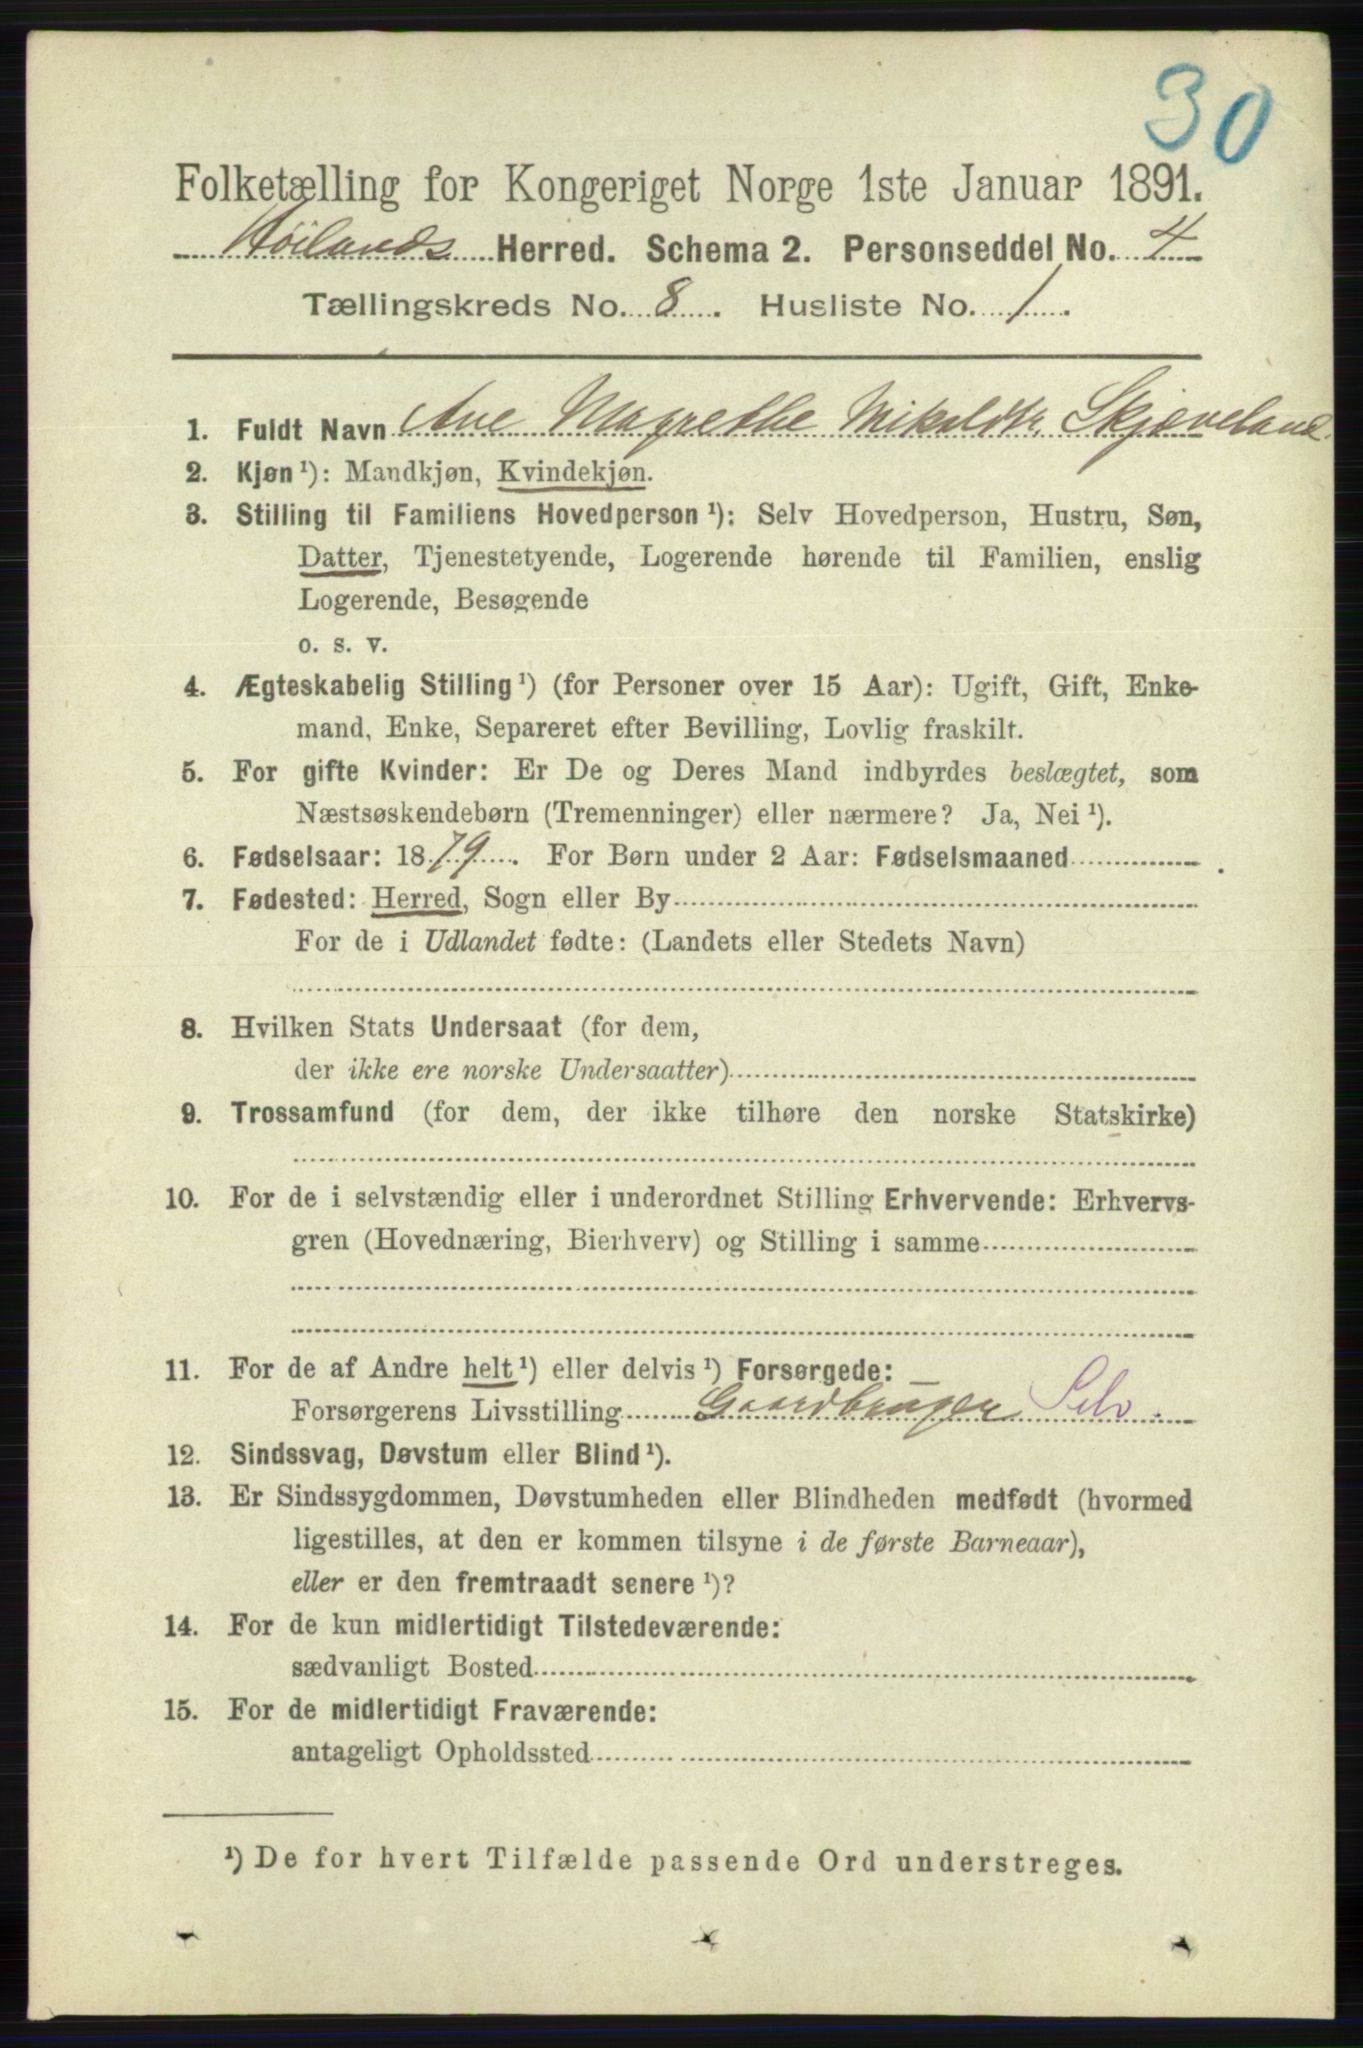 30
Folketælling for Kongeriget Norge 1ste Januar 1891.
Høilands Herred. Schema 2. Personseddel No. 4
Tællingskreds No. 8. Husliste No. 1.
1. Fuldt Navn Ane Magrethe Mikaldtr. Skjæveland.
2. Kjøn ¹): Mandkjøn, Kvindekjøn.
3. Stilling til Familiens Hovedperson ¹): Selv Hovedperson, Hustru, Søn,
Datter, Tjenestetyende, Logerende hørende til Familien, enslig
Logerende, Besøgende
o. s. v.
4. Ægteskabelig Stilling ¹) (for Personer over 15 Aar): Ugift, Gift, Enke-
mand, Enke, Separeret efter Bevilling, Lovlig fraskilt.
5. For gifte Kvinder: Er De og Deres Mand indbyrdes beslægtet, som
Næstsøskendebørn (Tremenninger) eller nærmere? Ja, Nei ¹).
6. Fødselsaar: 1879. For Børn under 2 Aar: Fødselsmaaned
7. Fødested: Herred, Sogn eller By
For de i Udlandet fødte: (Landets eller Stedets Navn)
8. Hvilken Stats Undersaat (for dem,
der ikke ere norske Undersaatter)
9. Trossamfund (for dem, der ikke tilhøre den norske Statskirke)
10. For de i selvstændig eller i underordnet Stilling Erhvervende: Erhvervs-
gren (Hovednæring, Bierhverv) og Stilling i samme
11. For de af Andre helt ¹) eller delvis ¹) Forsørgede:
Forsørgerens Livsstilling Gaardbruger Selv.
12. Sindssvag, Døvstum eller Blind ¹).
13. Er Sindssygdommen, Døvstumheden eller Blindheden medfødt (hvormed
ligestilles, at den er kommen tilsyne i de første Barneaar),
eller er den fremtraadt senere ¹)?
14. For de kun midlertidigt Tilstedeværende:
sædvanligt Bosted
15. For de midlertidigt Fraværende:
antageligt Opholdssted
¹) De for hvert Tilfælde passende Ord understreges.